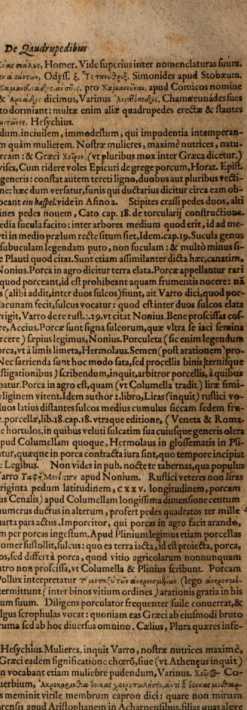 De Quadrupedibus
Homer. Vide superius inter nomenclaturas suum.
Odyss. ξ. Simonides apud Stobæum.
pro apud Comicos nomine
dicimus, Varinus Chamæeunides sues
to dormiant: multæ enim aliæ quadrupedes erectæ & stantes
Hesychius.
dum. inciuilem, immodestum, qui impudentia intemperan-
m quàm mulierem. Nostræ mulieres, maximè nutrices, natu-
ream: & Græci (vt pluribus mox inter Græca dicetur.)
ysica, Cum ridere voles Epicuri de grege porcum, Horat. Epist.
generis: constat autem terra lignea, duobus aut pluribus vecti-
ne: hæc dum versatur, sunis qui ductarius dicitur circa eam ob-
ocant ein haspel: vide in Asino a. Stipites crassi pedes duos, alti
ines pedes nouem, Cato cap. 18. de torculari constructione.
edia sucula facito: inter arbores medium quod erit, id ad me-
ti in medio prælum rectè situm siet, Idem. cap. 19. Sucula genus
subuculam legendum puto, non suculam: & multò minus si-
e Plauti quod citat. Sunt etiam assimilanter dicta hæc, canatim,
Nonius. Porca in agro dicitur terra elata. Porcæ appellantur rari
quod porceant, id est prohibeant aquam frumentis nocere: nã
s (alibi addit, inter duos sulcos) siunt, ait Varro dici, quod por-
lacunam fecit, sulcus vocatur: quod est inter duos sulcos elata
rigit, Varro de re rust. 1. 29. vt citat Nonius. Bene proscissas cos-
re, Accius. Porcæ sunt signa sulcorum, quæ vltra se iaci semina
rcere) sepius legimus, Nonius. Porculeta (sic enim legendum
orca, vt à limis limeta, Hermolaus. Semen (post arationem) pro-
Nec farienda sunt hoc modo sata, sed procellis binis
stigationibus) scribendum, inquit, arbitror porcellis, i. quibus
batur. Porca in agro est, quàm (vt Columella tradit) liræ simi-
liginem vitent. Idem author 2. libro, Liras (inquit) rustici vo-
duos latius distantes sulcos medius cumulus siccam sedem fru-
porcellæ, lib. 18. cap. 18. vtraque editione, (Veneta & Roma-
e hortulos, in quibus veluti sulcatim sua cuiusque generis olera
pud Columellam quoque, Hermolaus in glossematis in Pli-
tur, quæque in porca contracta iura sint, quo tempore incipiat
Legibus. Non vides in pub. nocte tabernas, qua populus
arro apud Nonium. Rustici veteres non liras
riginta pedum latitudinem, CXXV. longitudinem, porcam
us Cenalis) apud Columellam longissima dimensione centum
numerus ductus in alterum, profert pedes quadratos ter mille
urta pars actus. Imporcitor, qui porcas in agro facit arando,
m per porcas ingestum. Apud Plinium legimus etiam porcellas
omer sustollit, sulcus: quo ex terra iacta, id est proiecta, porca,
os, sed differri porca, quod vitio agricolarum nonnunquam
atro non proscissa, vt Columella & Plinius scribunt. Porcam
Pollux interpretatur (lego
termittunt inter binos vitium ordines) arationis gratia in his
um suum. Diligens porculator frequenter suile conuerrat, &
lgus scrophulas vocat: quoniam eas Græci ab eiusmodi bruto
nata sed ab hoc diuersus omnino. Cælius, Plura quæres infe-
Hesychius. Mulieres, inquit Varro, nostræ nutrices maximè,
Græci eadem significatione chœrõ, siue (vt Athenæus inquit)
n vocabant etiam muliebre pudendum, Varinus.
uerbium,
s meminit virile membrum capron dici: quare non mirum
rensis apud Aristophanem in Acharnensibus filias quas alere